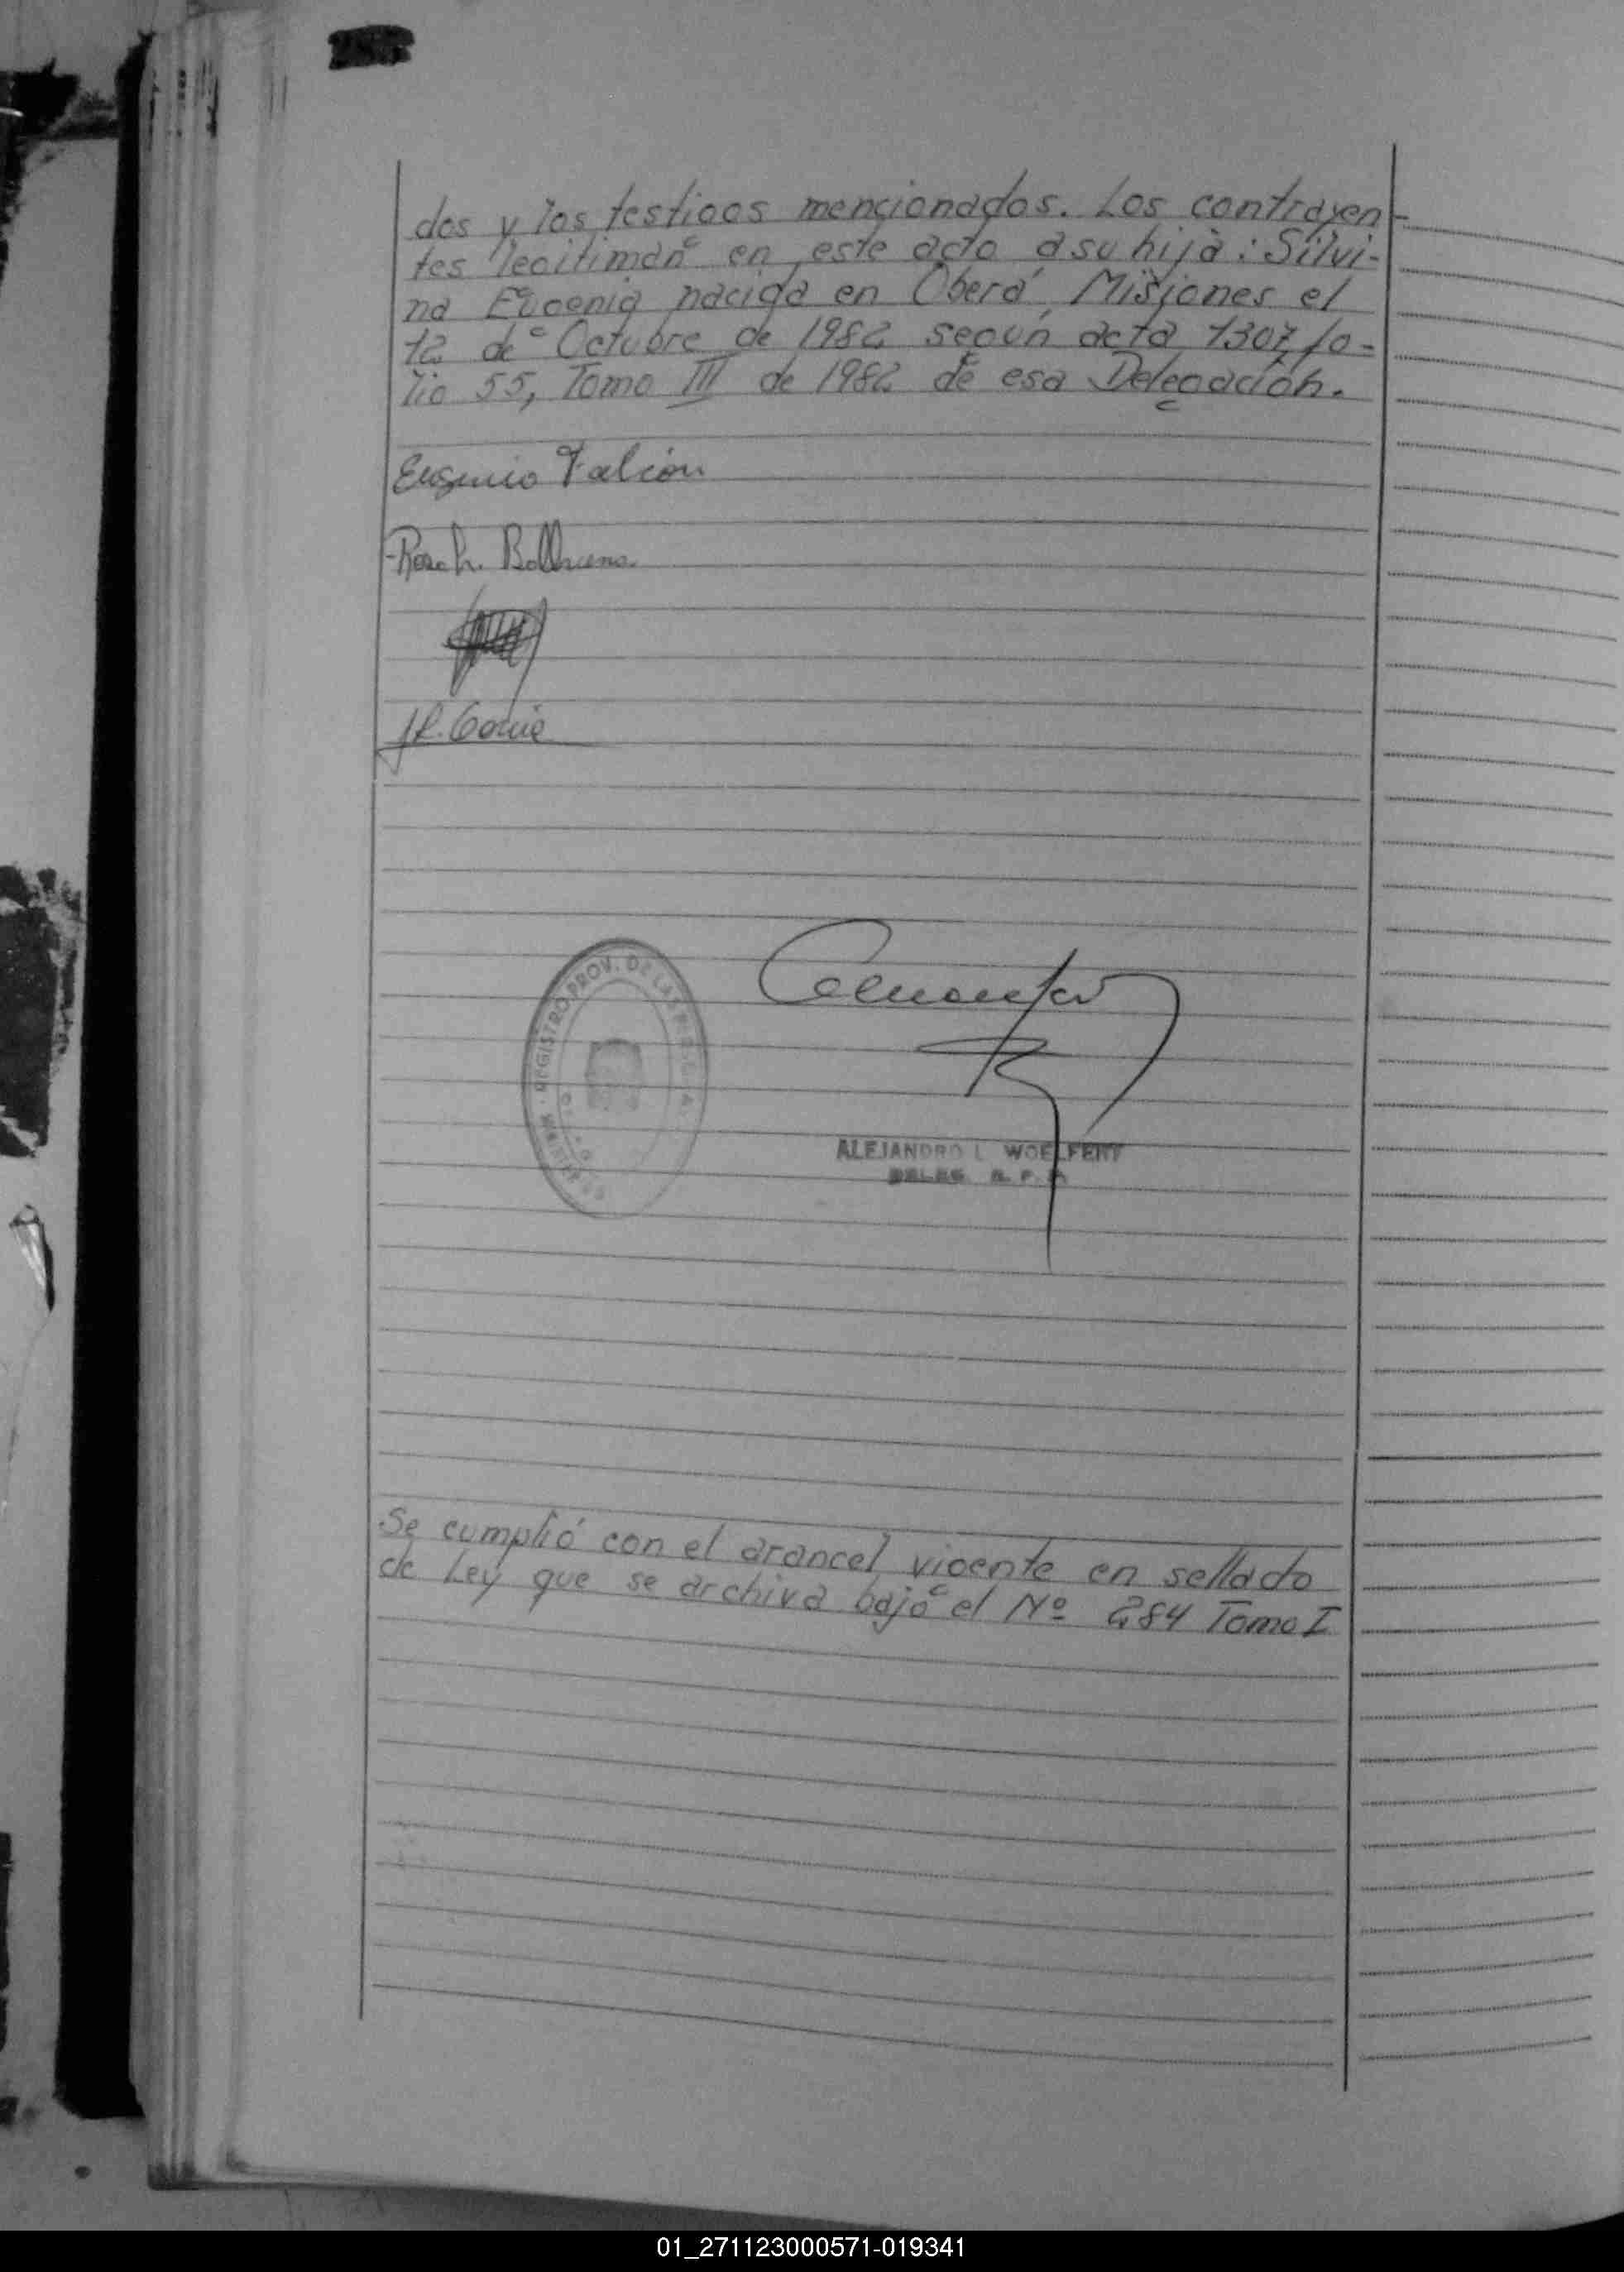 dos y los testigos mencionados. Los contrayen-
tes legitiman en este acto a su hija: Silvi-
na Eugenia nacida en Oberá Misiones el
12 de Octubre de 1982 según acta 1307 fo-
lio 55, Tomo III de 1982 de esa Delegación.
Eugenio Falcón
Rosa
REGISTRO PROV. DE LAS
ALEJANDRO L WOELFERT
DELEG. R. P. P.
Se cumplió con el arancel vigente en sellado
de Ley que se archiva bajo el Nº 284 Tomo I
01_271123000571-019341